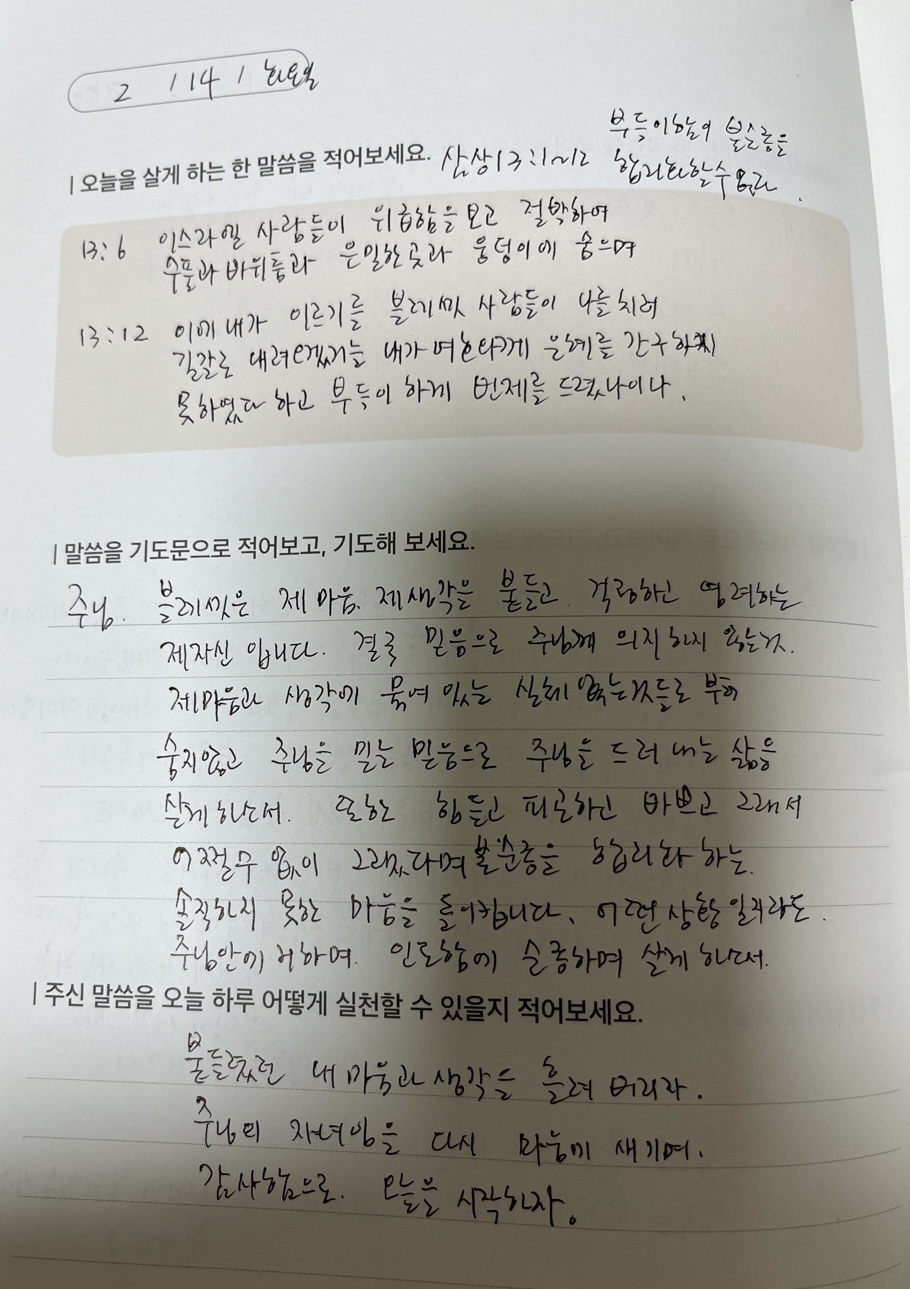 2 / 14 / 화요일
부득이함이 불순종을
| 오늘을 살게 하는 한 말씀을 적어보세요. 삼상13:1~12 합리화할수 없다.
13:6 이스라엘 사람들이 위급함을 보고 절박하여
수풀과 바위틈과 은밀한 곳과 웅덩이에 숨으며
13:12 이에 내가 이르기를 블레셋 사람들이 나를 치러
길갈로 내려오겠거늘 내가 여호와께 은혜를 간구하지
못하였다 하고 부득이 하게 번제를 드렸나이다.
| 말씀을 기도문으로 적어보고, 기도해 보세요.
주님. 블레셋은 제 마음, 제생각을 붙들고. 걱정하고 염려하는
제자신 입니다. 결국 믿음으로 주님께 의지하지 않는것.
제마음과 생각에 묶여 있는 실체 없는것들로 부터
숨지않고 주님을 믿는 믿음으로 주님을 드러 내는 삶을
살게 하소서. 또한 힘들고 피곤하고 바쁘고 그래서
어쩔수 없이 그랬다며 불순종을 합리화 하는.
솔직하지 못한 마음을 돌이킵니다. 어떤 상황일지라도.
주님안에 거하며. 인도함에 순종하며 살게 하소서.
| 주신 말씀을 오늘 하루 어떻게 실천할 수 있을지 적어보세요.
붙들렸던 내 마음과 생각을 흘려 버리자.
주님의 자녀임을 다시 마음에 새기며.
감사함으로. 오늘을 시작하자.